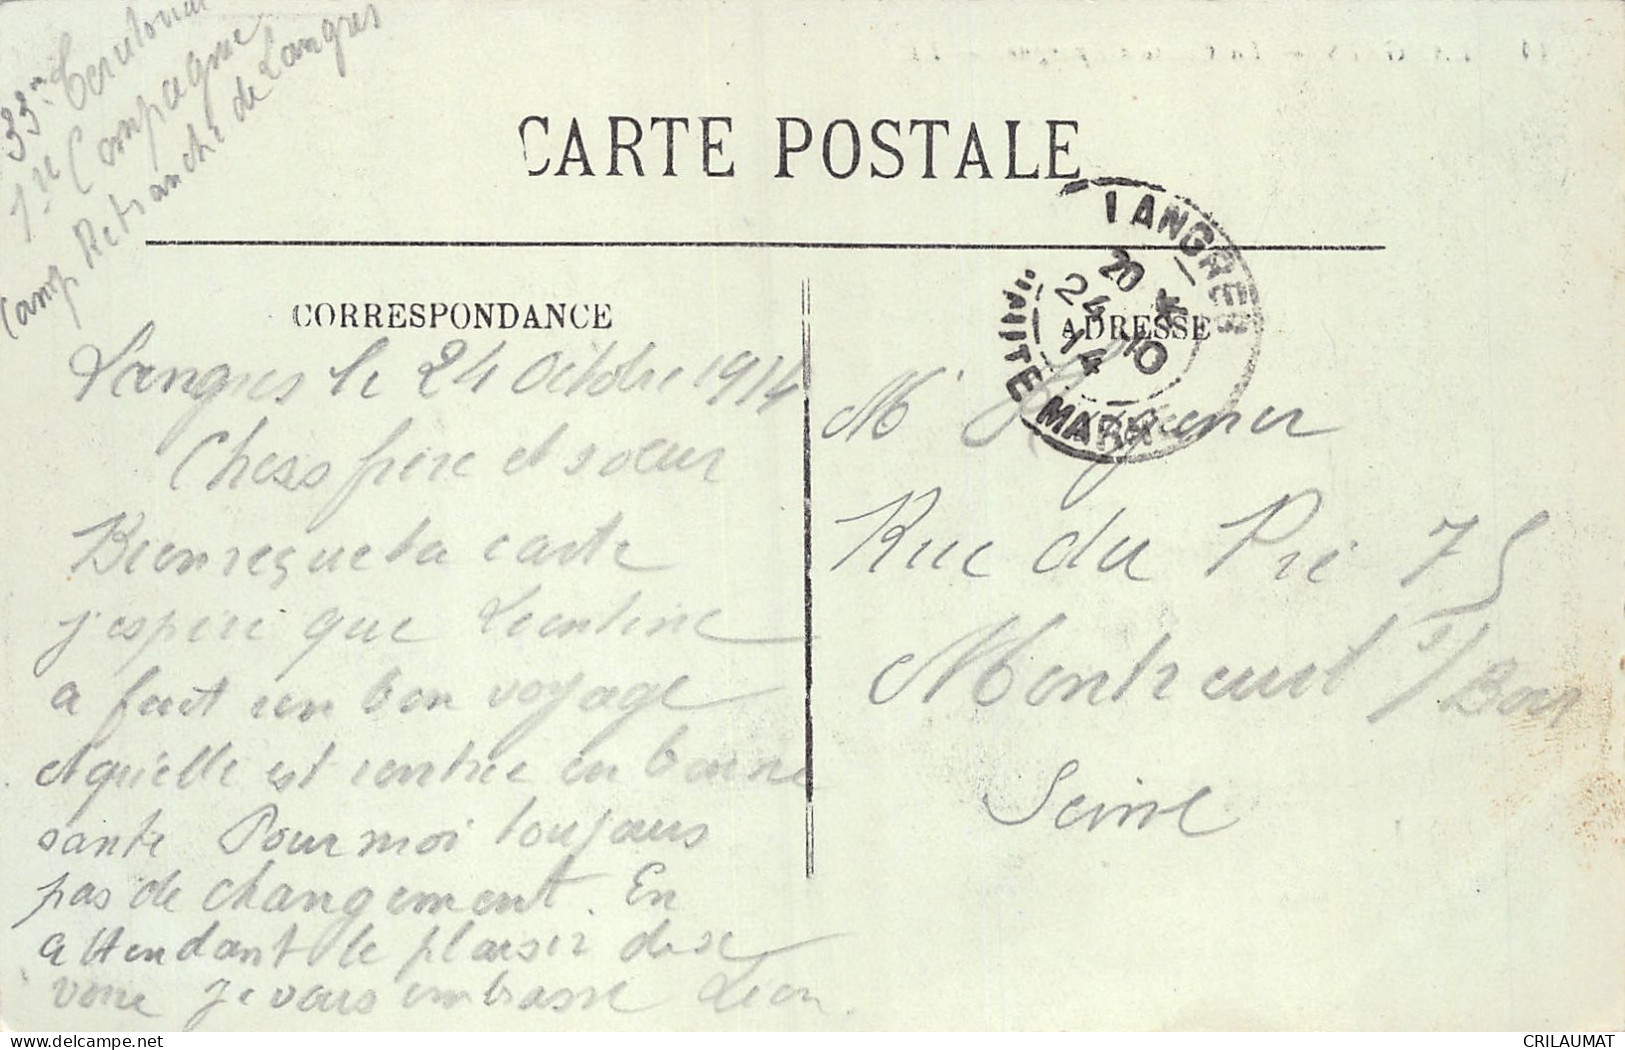 33me Territorial
1re Compagnie
Camp Retranché de Langres
CARTE POSTALE
LANGRES
HAUTE MARNE
20 *
24 - 10
14
CORRESPONDANCE
ADRESSE
Langres le 24 Octobre 1914
Chers frère et sœur
Bien reçue ta carte
j'espère que Leontine
a fait un bon voyage
et qu'elle est rentrée en bonne
santé Pour moi toujours
pas de changement. En
attendant le plaisir de se
voire je vous embrasse Leon.
Mr
Rue du Pré 75
Montreuil s/Bois
Seine
CRILAUMAT